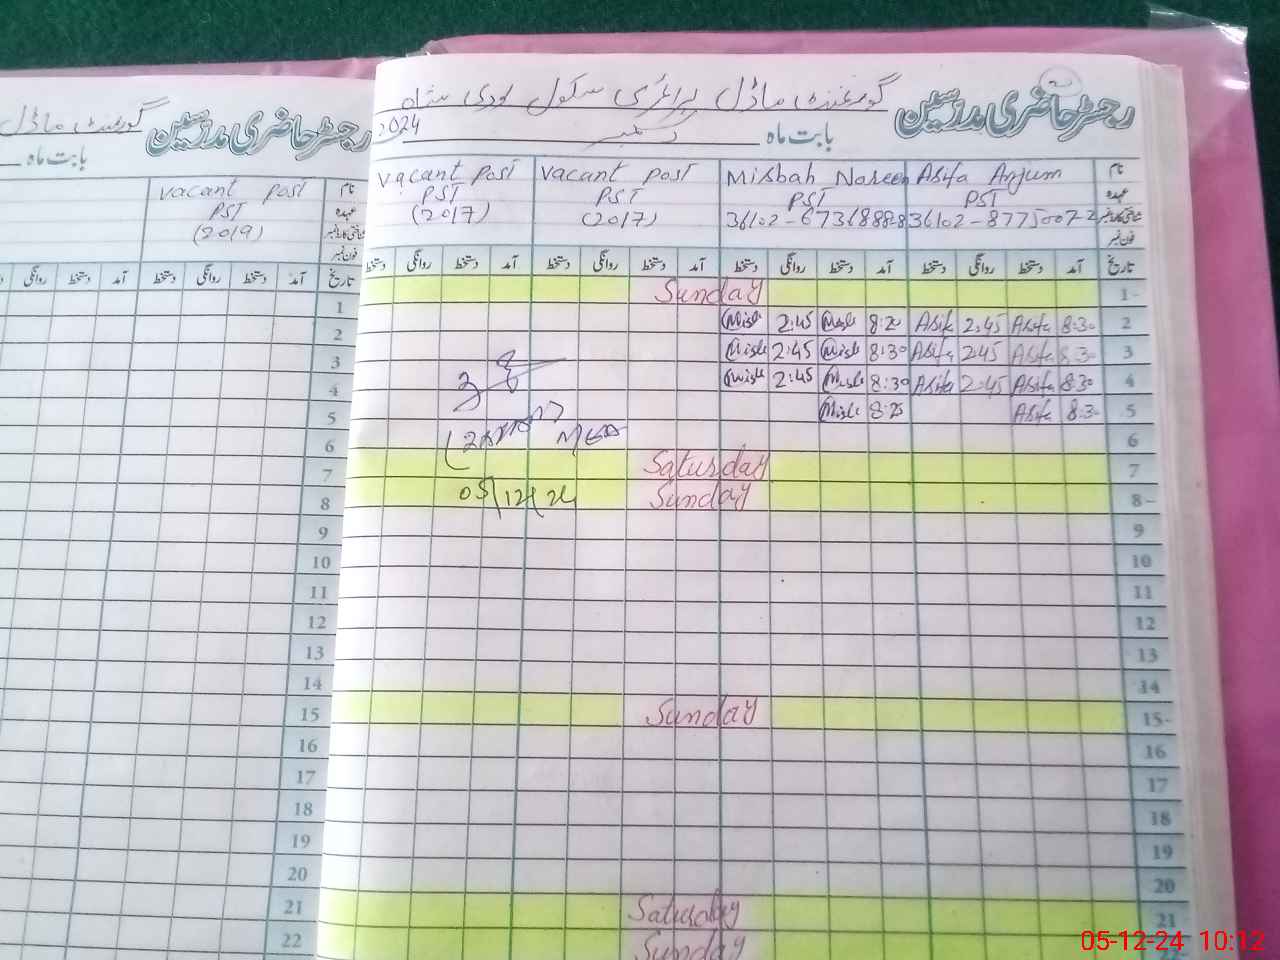 رجسٹر حاضری مدرسین
گورنمنٹ ماڈل پرائمری سکول لودی شاہ
بابت ماہ دسمبر 2024
نام Asifa Anjum Misbah Noreen vacant post vacant post
عہدہ PST PST PST PST
شناختی کارڈ نمبر 36102-8775007-2 36102-6736888-8 (2017) (2017)
فون نمبر
تاریخ آمد دستخط روانگی دستخط آمد دستخط روانگی دستخط آمد دستخط روانگی دستخط آمد دستخط روانگی دستخط
1 Sunday
2 8:30 Asifa 2:45 Asifa 8:20 Misb 2:45 Misb
3 8:30 Asifa 2:45 Asifa 8:30 Misb 2:45 Misb
4 8:30 Asifa 2:45 Asifa 8:30 Misb 2:45 Misb
5 8:3 Asifa 8:25 Misb
6
7 Saturday
8 Sunday
05/12/24
9
10
11
12
13
14
15 Sunday
16
17
18
19
20
21 Saturday
22 Sunday
رجسٹر حاضری مدرسین
گورنمنٹ ماڈل
بابت ماہ
نام vacant post
عہدہ PST
شناختی کارڈ نمبر (2019)
فون نمبر
تاریخ آمد دستخط روانگی دستخط آمد دستخط روانگی
1
2
3
4
5
6
7
8
9
10
11
12
13
14
15
16
17
18
19
20
21
22
05-12-24 10:12